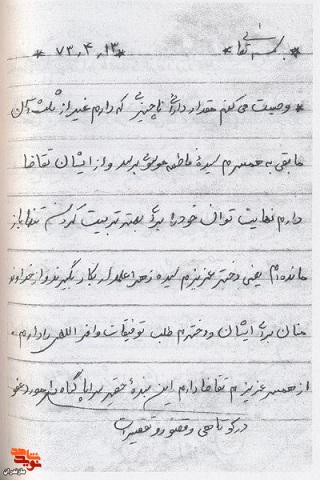 * بسمه تعالی * ۷۳٫۴٫۱۳ *
* وصیت می کنم مقدار دارائی ناچیزی که دارم غیر از ثلث آن
مابقی به همسرم سیده فاطمه موسوی برسد و از ایشان تقاضا
دارم نهایت توان خود را برای بهتر تربیت کردن تنها باز
مانده ام یعنی دختر عزیزم سیده زهرا علمدار بکار گیرند و از خداوند
منان برای ایشان و دخترم طلب توفیقات وافر اللهی را دارم.
از همسر عزیزم تقاضا دارم این بندۀ حقیر سراپا گناه را مورد عفو
در کوتاهی و قصور و تقصیرات